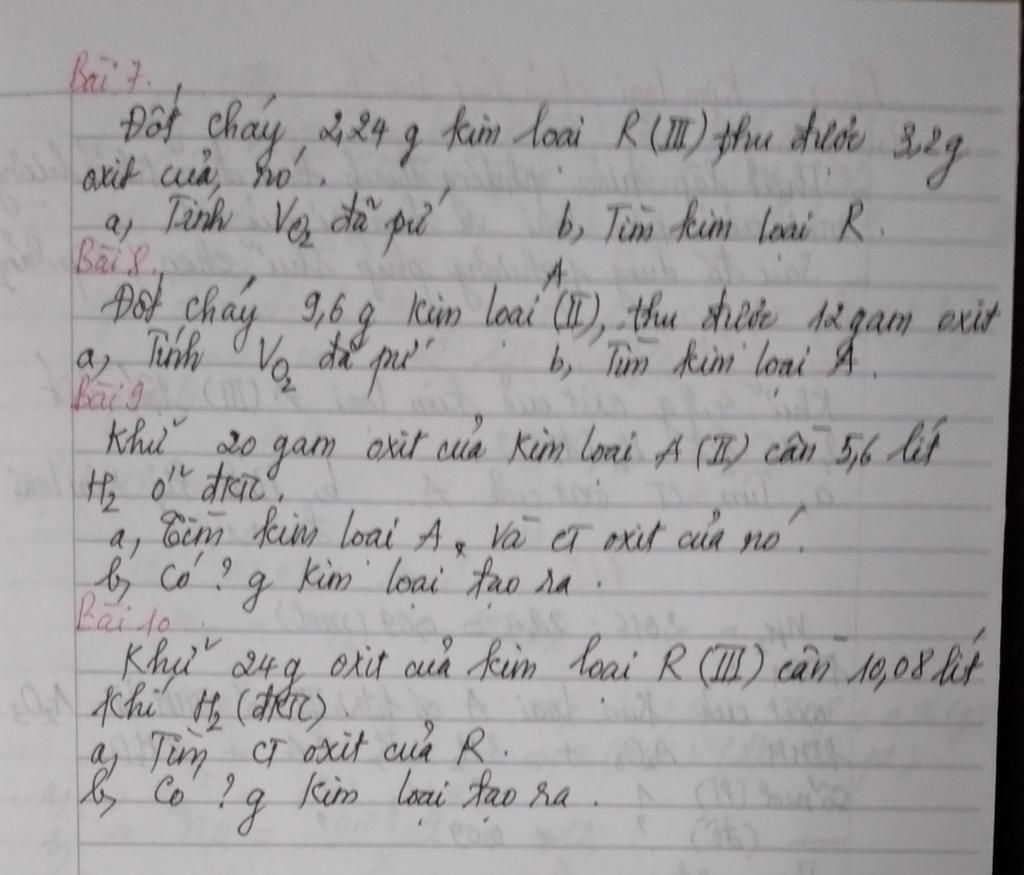 Bài 7.
Đốt cháy 2,24 g kim loại R (III) thu được 3,2g
oxit của nó.
a, Tính VO₂ đã pứ b, Tìm kim loại R.
Bài 8.
Đốt cháy 9,6 g kim loại A (II), thu được 12 gam oxit
a, Tính VO₂ đã pứ b, Tìm kim loại A.
Bài 9
Khử 20 gam oxit của kim loại A (II) cần 5,6 lít
H₂ ở đktc.
a, Tìm kim loại A, Và CT oxit của nó.
b, Có ? g kim loại tạo ra.
Bài 10
Khử 24 g oxit của kim loại R (III) cần 10,08 lít
khí H₂ (đktc).
a, Tìm CT oxit của R.
b, Có ? g kim loại tạo ra.